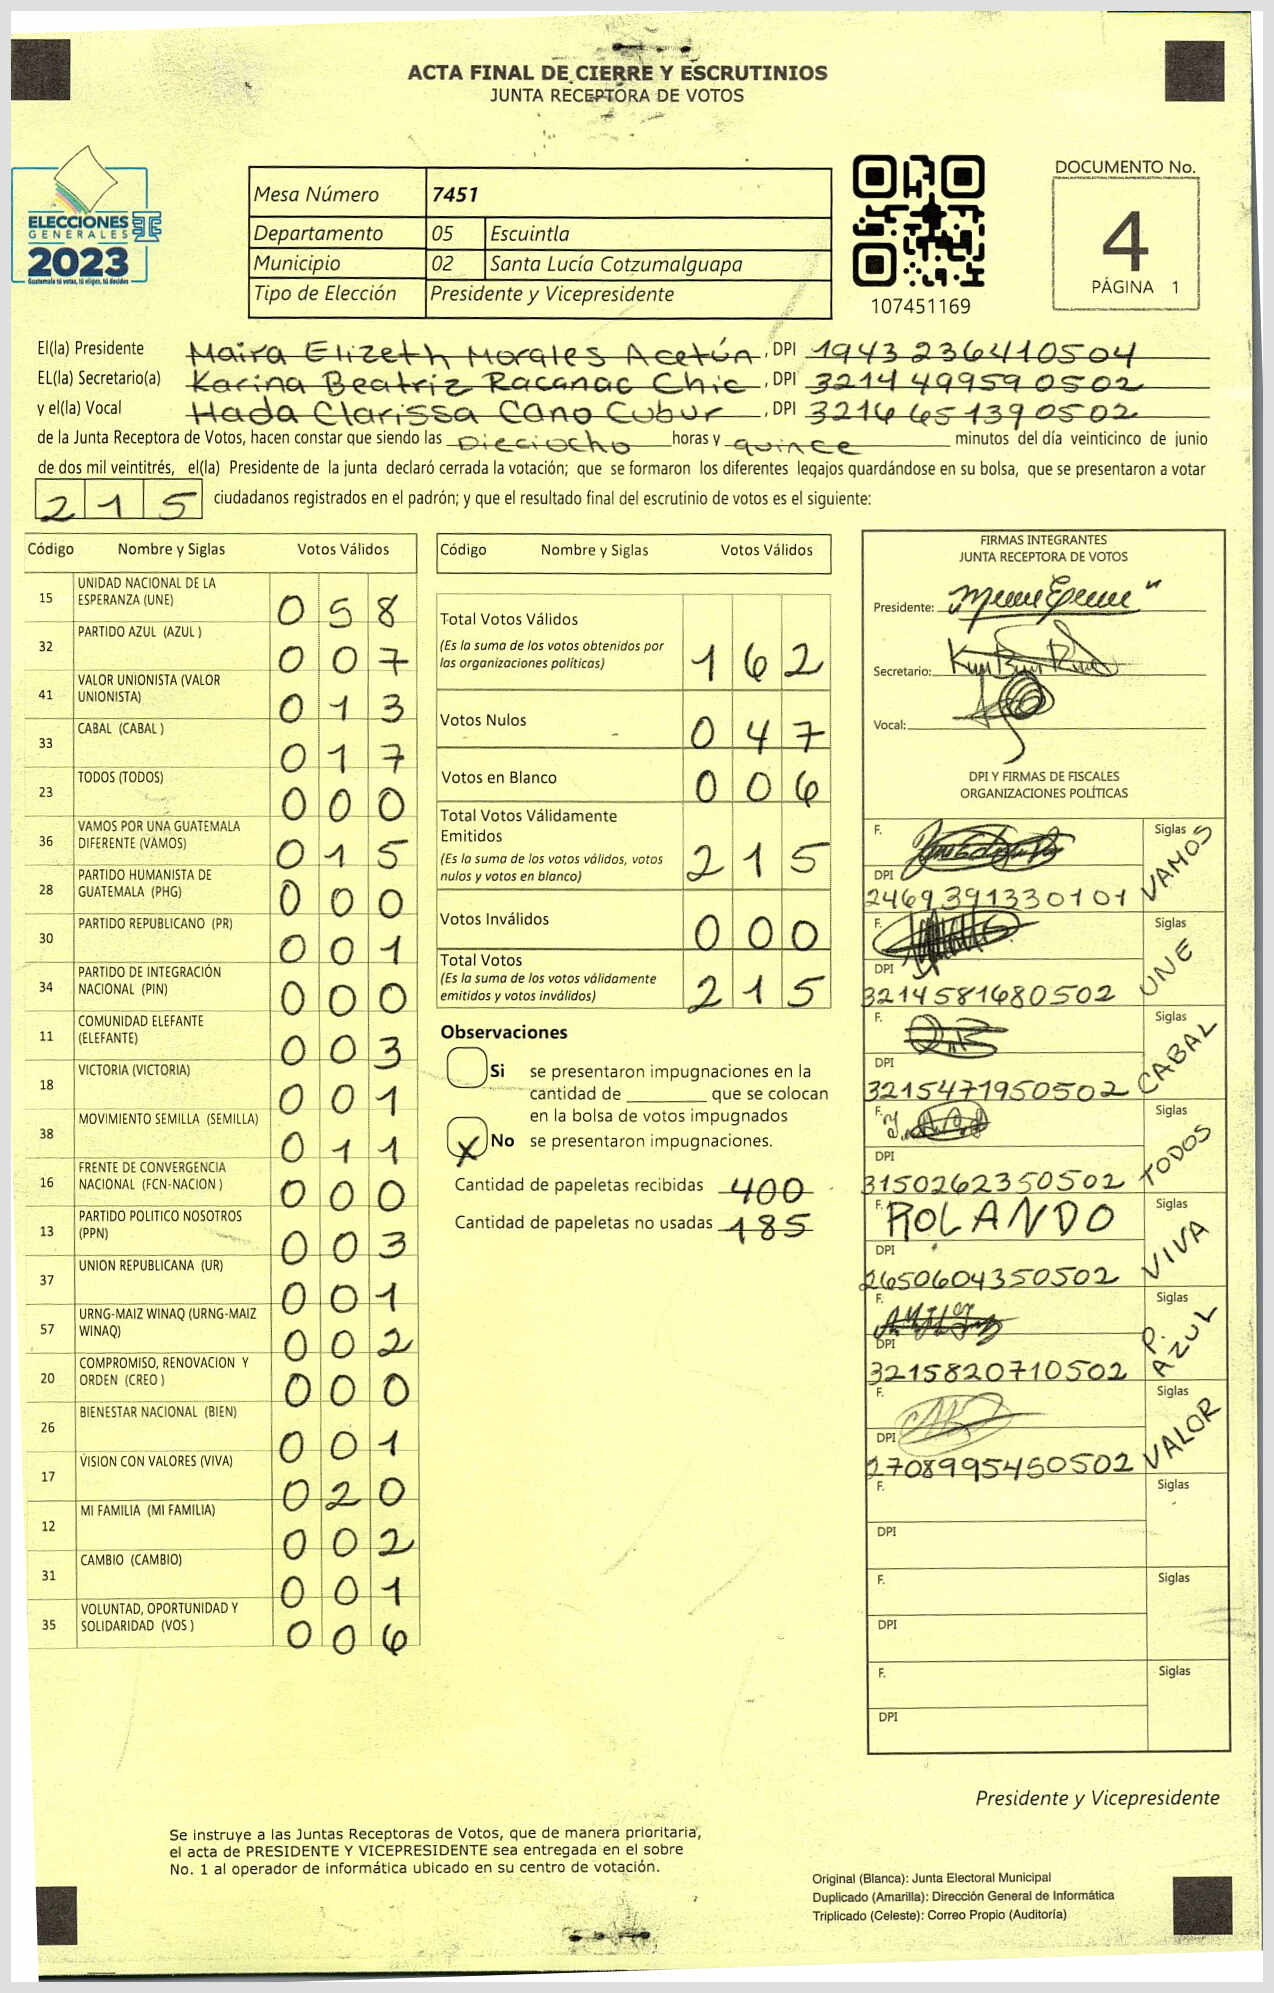 ACTA FINAL DE CIERRE Y ESCRUTINIOS
JUNTA RECEPTORA DE VOTOS
ELECCIONES
GENERALES
2023
Guatemala tú votas, tú eliges, tú decides
Mesa Número 7451
Departamento 05 Escuintla
Municipio 02 Santa Lucía Cotzumalguapa
Tipo de Elección Presidente y Vicepresidente
107451169
DOCUMENTO No.
4
PÁGINA 1
El(la) Presidente Maira Elizeth Morales Acetún, DPI 1943 23641 0504
EL(la) Secretario(a) Karina Beatriz Racanac Chic, DPI 3214 49959 0502
y el(la) Vocal Hada Clarissa Cano Cubur, DPI 3216 65139 0502
de la Junta Receptora de Votos, hacen constar que siendo las Dieciocho horas y quince minutos del día veinticinco de junio
de dos mil veintitrés, el(la) Presidente de la junta declaró cerrada la votación; que se formaron los diferentes legajos guardándose en su bolsa, que se presentaron a votar
215 ciudadanos registrados en el padrón; y que el resultado final del escrutinio de votos es el siguiente:
Código Nombre y Siglas Votos Válidos
15 UNIDAD NACIONAL DE LA
ESPERANZA (UNE) 058
32 PARTIDO AZUL (AZUL ) 007
41 VALOR UNIONISTA (VALOR
UNIONISTA) 013
33 CABAL (CABAL ) 017
23 TODOS (TODOS) 000
36 VAMOS POR UNA GUATEMALA
DIFERENTE (VAMOS) 015
28 PARTIDO HUMANISTA DE
GUATEMALA (PHG) 000
30 PARTIDO REPUBLICANO (PR) 001
34 PARTIDO DE INTEGRACIÓN
NACIONAL (PIN) 000
11 COMUNIDAD ELEFANTE
(ELEFANTE) 003
18 VICTORIA (VICTORIA) 001
38 MOVIMIENTO SEMILLA (SEMILLA) 011
16 FRENTE DE CONVERGENCIA
NACIONAL (FCN-NACION ) 000
13 PARTIDO POLITICO NOSOTROS
(PPN) 003
37 UNION REPUBLICANA (UR) 001
57 URNG-MAIZ WINAQ (URNG-MAIZ
WINAQ) 002
20 COMPROMISO, RENOVACION Y
ORDEN (CREO ) 000
26 BIENESTAR NACIONAL (BIEN) 001
17 VISION CON VALORES (VIVA) 020
12 MI FAMILIA (MI FAMILIA) 002
31 CAMBIO (CAMBIO) 001
35 VOLUNTAD, OPORTUNIDAD Y
SOLIDARIDAD (VOS ) 006
Código Nombre y Siglas Votos Válidos
Total Votos Válidos
(Es la suma de los votos obtenidos por
las organizaciones políticas) 162
Votos Nulos 047
Votos en Blanco 006
Total Votos Válidamente
Emitidos
(Es la suma de los votos válidos, votos
nulos y votos en blanco) 215
Votos Inválidos 000
Total Votos
(Es la suma de los votos válidamente
emitidos y votos inválidos) 215
Observaciones
Si se presentaron impugnaciones en la
cantidad de ________ que se colocan
en la bolsa de votos impugnados
X No se presentaron impugnaciones.
Cantidad de papeletas recibidas 400
Cantidad de papeletas no usadas 185
FIRMAS INTEGRANTES
JUNTA RECEPTORA DE VOTOS
Presidente:
Secretario:
Vocal:
DPI Y FIRMAS DE FISCALES
ORGANIZACIONES POLÍTICAS
F. Siglas VAMOS
DPI
2469391330101
F. Siglas UNE
DPI
3214581680502
F. Siglas CABAL
DPI
3215471950502
F. Siglas TODOS
DPI
3150262350502
F. ROLANDO Siglas VIVA
DPI
2650604350502
F. Siglas P. AZUL
DPI
3215820710502
F. Siglas VALOR
DPI
2708995450502
F. Siglas
DPI
F. Siglas
DPI
F. Siglas
DPI
Presidente y Vicepresidente
Se instruye a las Juntas Receptoras de Votos, que de manera prioritaria,
el acta de PRESIDENTE Y VICEPRESIDENTE sea entregada en el sobre
No. 1 al operador de informática ubicado en su centro de votación.
Original (Blanca): Junta Electoral Municipal
Duplicado (Amarilla): Dirección General de Informática
Triplicado (Celeste): Correo Propio (Auditoría)